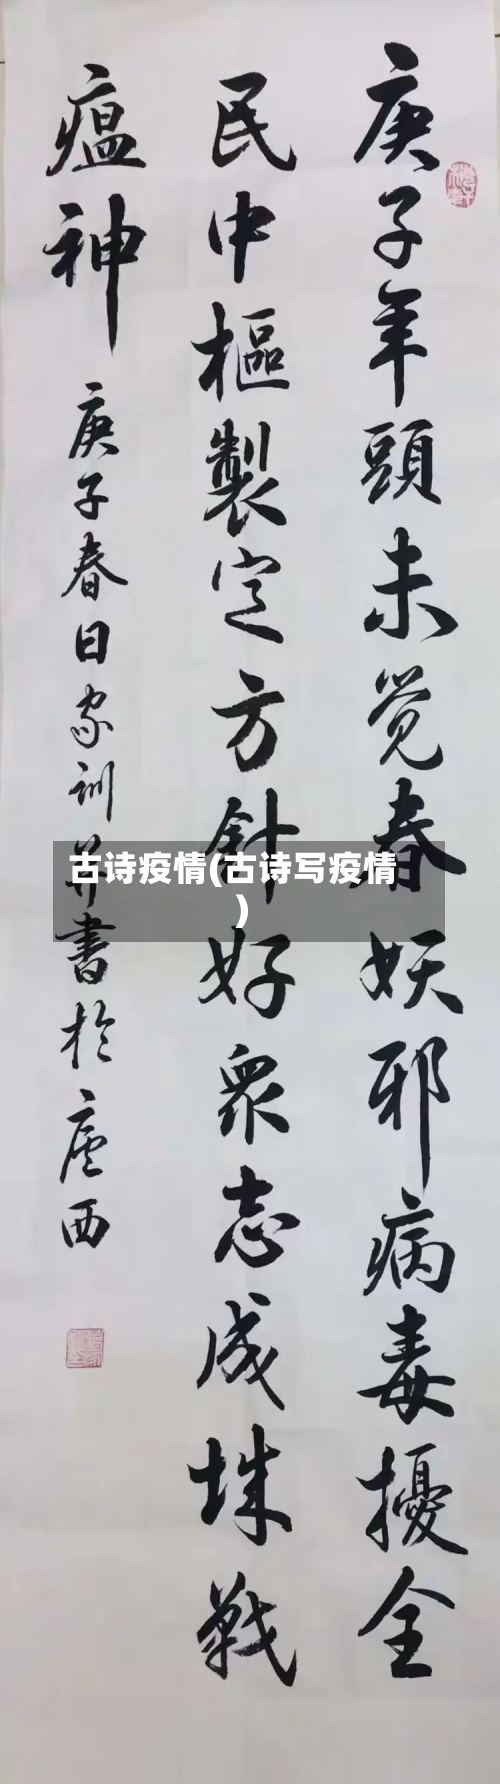 庚子年頭未觉春妖邪病毒擾全
民中樞製定方針好眾志成城戰
瘟神
庚子春日家训并書於廬西
古诗疫情(古诗写疫情
)